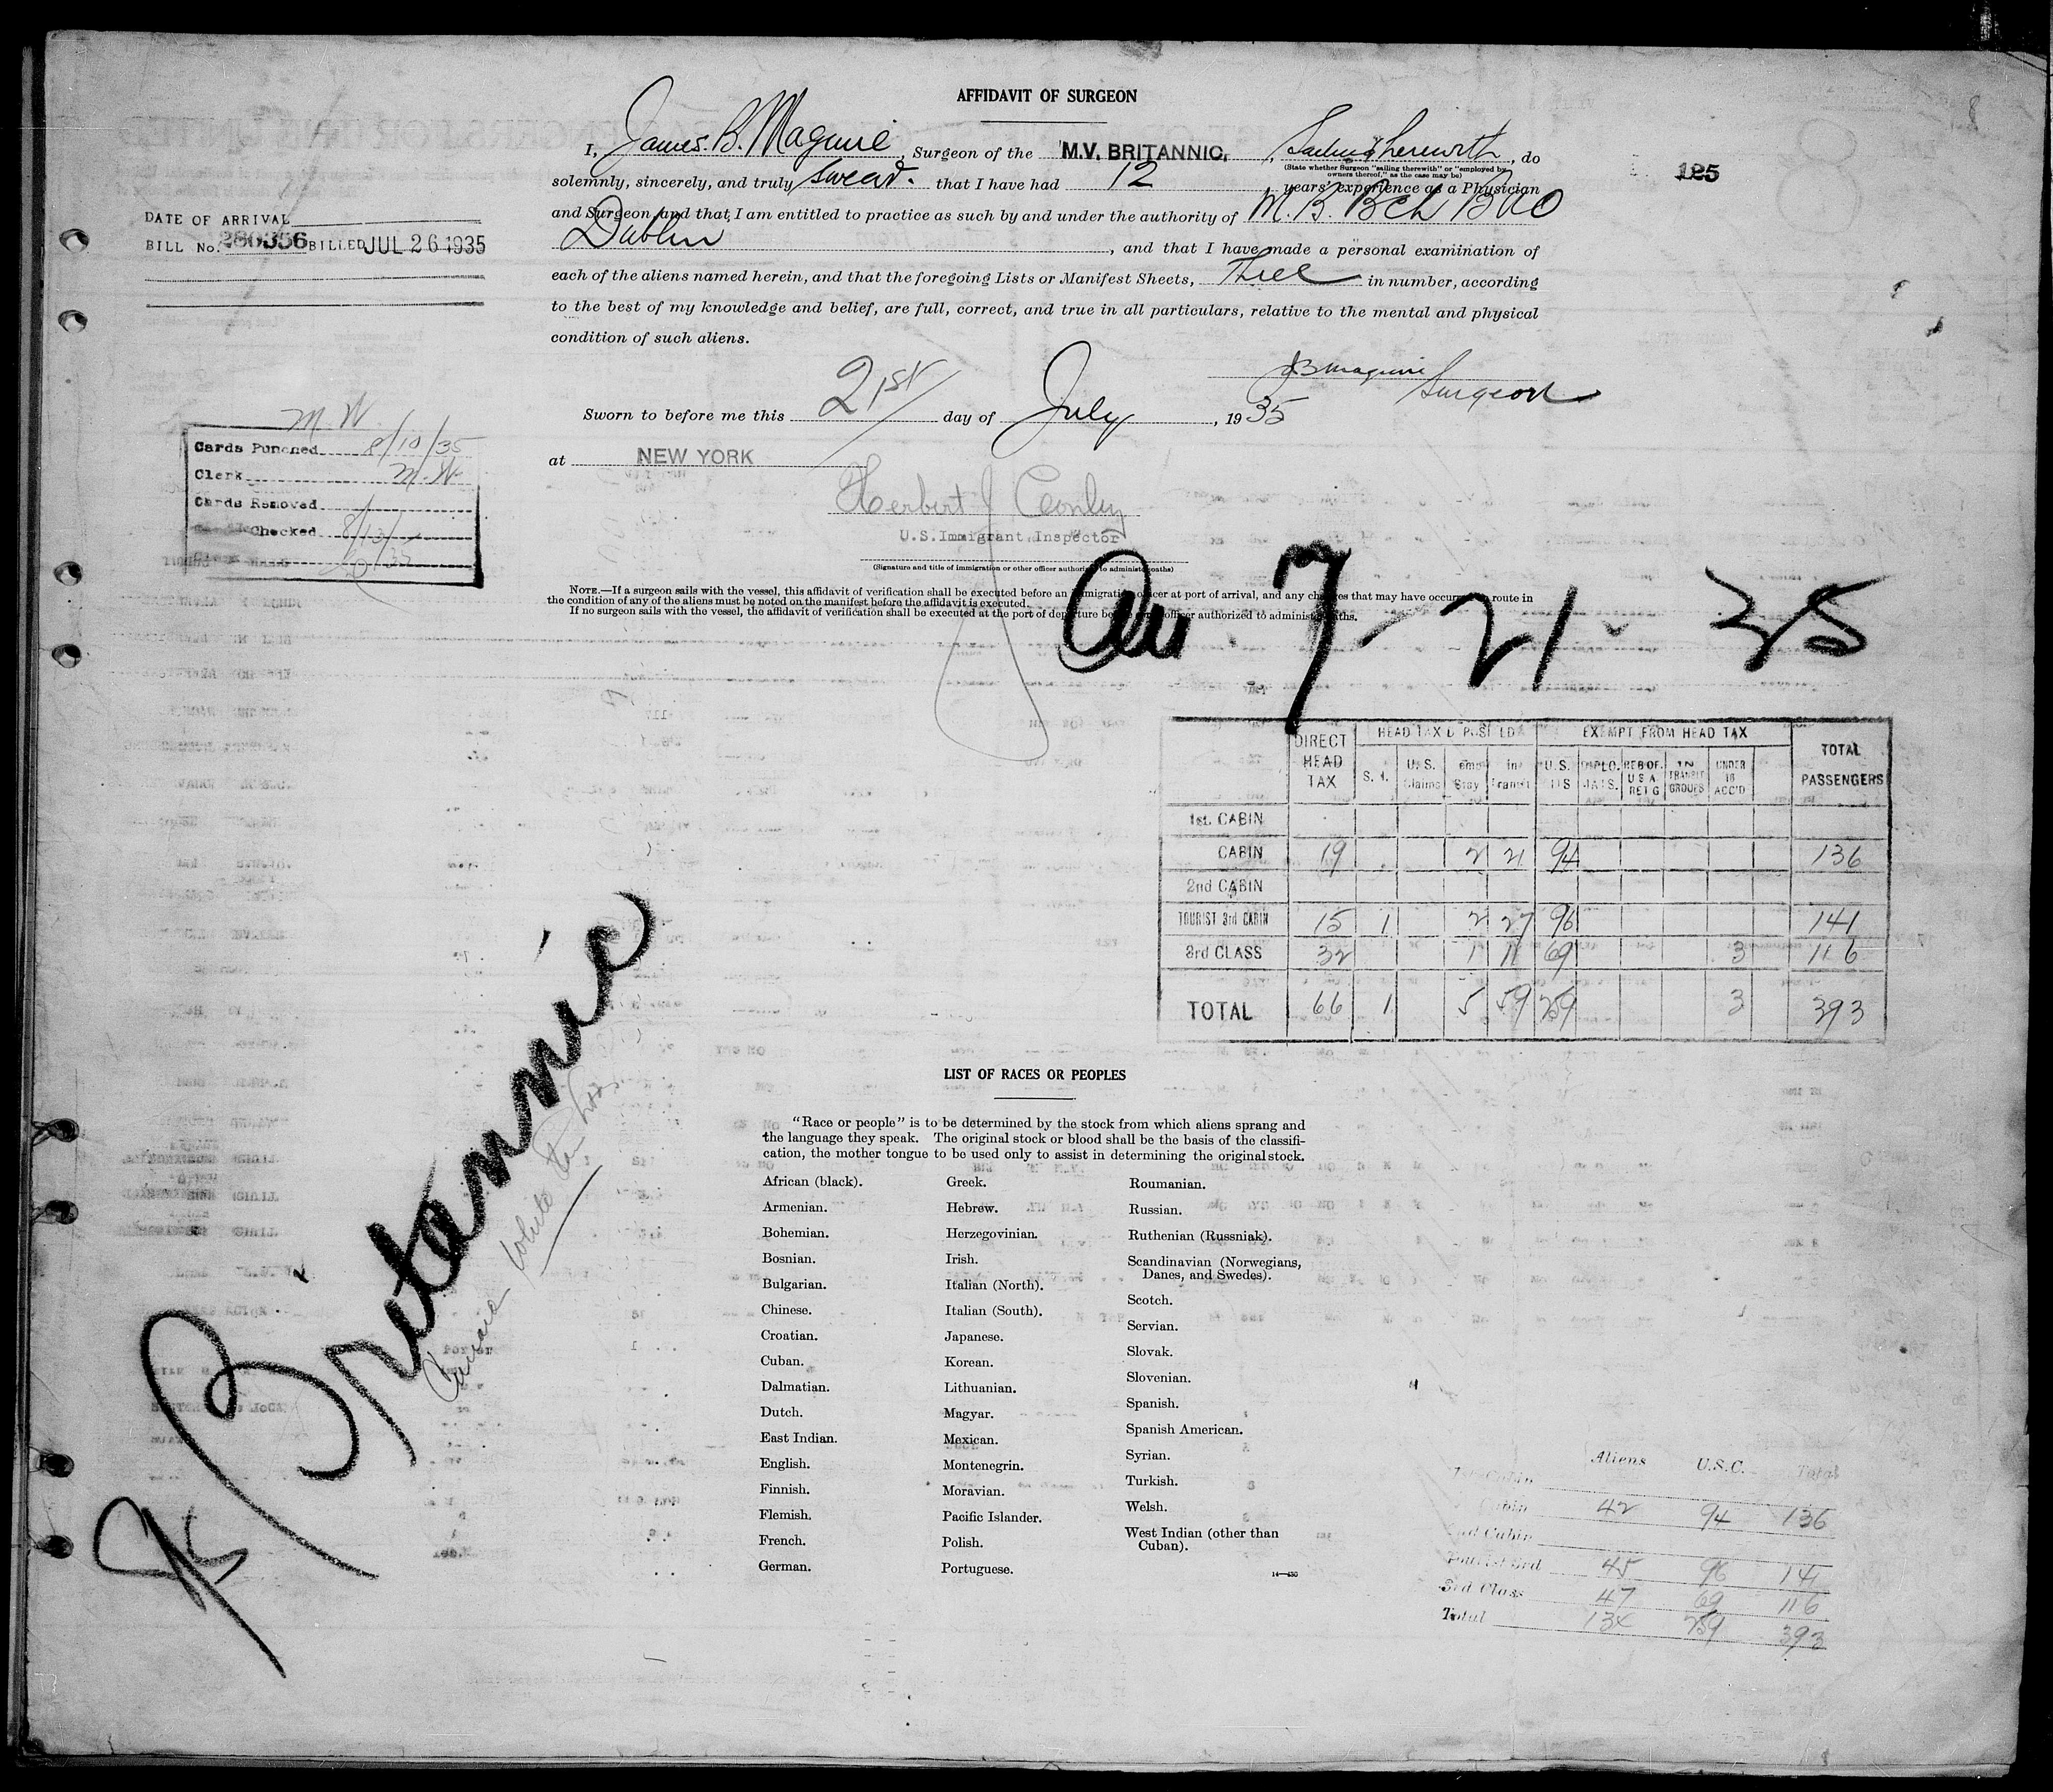 AFFIDAVIT OF SURGEON
I, James. B. Maguire, Surgeon of the M.V. BRITANNIC, Sailing therewith, do
(State whether Surgeon "sailing therewith" or "employed by owners thereof," as the case may be)
125
solemnly, sincerely, and truly swear. that I have had 12 years' experience as a Physician
and Surgeon, and that I am entitled to practice as such by and under the authority of M. B. Bch BAO
Dublin, and that I have made a personal examination of
each of the aliens named herein, and that the foregoing Lists or Manifest Sheets, Three in number, according
to the best of my knowledge and belief, are full, correct, and true in all particulars, relative to the mental and physical
condition of such aliens.
DATE OF ARRIVAL
BILL No. 280356 BILLED JUL 26 1935
JB Maguire
Surgeon
Sworn to before me this 21st day of July, 1935
at NEW YORK
Herbert J Conley
U.S. Immigrant Inspector
(Signature and title of immigration or other officer authorized to administer oaths)
M. W.
Cards Punched 8/10/35
Clerk M. W.
Cards Removed
Checked 8/13/
NOTE.—If a surgeon sails with the vessel, this affidavit of verification shall be executed before an immigration officer at port of arrival, and any changes that may have occurred en route in
the condition of any of the aliens must be noted on the manifest before the affidavit is executed.
If no surgeon sails with the vessel, the affidavit of verification shall be executed at the port of departure before an officer authorized to administer oaths.
7-21-35
DIRECT HEAD TAX
HEAD TAX DEPOSITED
EXEMPT FROM HEAD TAX
TOTAL PASSENGERS
S. I. U.S. Claims Temp Stay in Transit U.S. CITS DIPLO. MATS. REB OF. U S A RET G IN TRANSIT GROUPS UNDER 16 ACC'D
1st. CABIN
CABIN 19 2 21 94 136
2nd CABIN
TOURIST 3rd CABIN 15 1 2 27 96 141
3rd CLASS 32 1 11 69 3 116
TOTAL 66 1 5 59 259 3 393
Britannic
Cunard White Star
LIST OF RACES OR PEOPLES
"Race or people" is to be determined by the stock from which aliens sprang and
the language they speak. The original stock or blood shall be the basis of the classifi-
cation, the mother tongue to be used only to assist in determining the original stock.
African (black).
Armenian.
Bohemian.
Bosnian.
Bulgarian.
Chinese.
Croatian.
Cuban.
Dalmatian.
Dutch.
East Indian.
English.
Finnish.
Flemish.
French.
German.
Greek.
Hebrew.
Herzegovinian.
Irish.
Italian (North).
Italian (South).
Japanese.
Korean.
Lithuanian.
Magyar.
Mexican.
Montenegrin.
Moravian.
Pacific Islander.
Polish.
Portuguese.
Roumanian.
Russian.
Ruthenian (Russniak).
Scandinavian (Norwegians,
Danes, and Swedes).
Scotch.
Servian.
Slovak.
Slovenian.
Spanish.
Spanish American.
Syrian.
Turkish.
Welsh.
West Indian (other than
Cuban).
Aliens U.S.C. Total
1st Cabin
Cabin 42 94 136
2nd Cabin
Tourist 3rd 45 96 141
3rd Class 47 69 116
Total 134 259 393